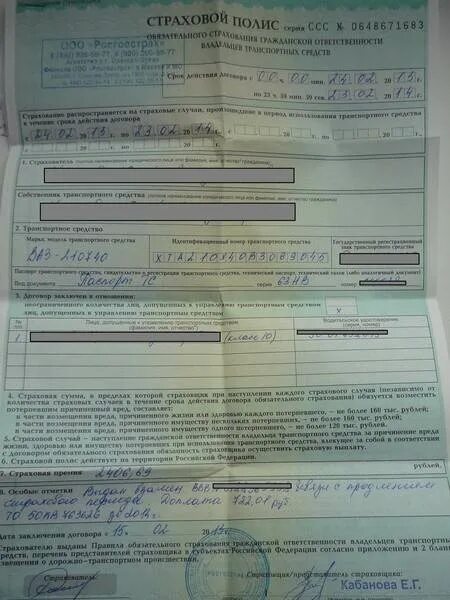 СТРАХОВОЙ ПОЛИС серия ССС № 0648671683
ОБЯЗАТЕЛЬНОГО СТРАХОВАНИЯ ГРАЖДАНСКОЙ ОТВЕТСТВЕННОСТИ
ВЛАДЕЛЬЦЕВ ТРАНСПОРТНЫХ СРЕДСТВ
ООО "Росгосстрах"
Срок действия договора с 00 ч. 00 мин. 24.02.2013 г.
по 23 ч. 59 мин. 59 сек. 23.02.2014 г.
Страхование распространяется на страховые случаи, произошедшие в период использования транспортного средства
в течение срока действия договора
с 24.02.2013 по 23.02.2014
1. Страхователь
Собственник транспортного средства
2. Транспортное средство
Марка, модель транспортного средства Идентификационный номер транспортного средства Государственный регистрационный знак транспортного средства
ВАЗ-210740
Вид документа Паспорт ТС серия 63НВ номер
3. Договор заключен в отношении:
неограниченного количества лиц, допущенных к управлению транспортным средством
лиц, допущенных к управлению транспортным средством X
№ п/п Лица, допущенные к управлению транспортным средством (фамилия, имя, отчество) Водительское удостоверение (серия, номер)
1. (класс 10)
4. Страховая сумма, в пределах которой страховщик при наступлении каждого страхового случая (независимо от
количества страховых случаев в течение срока действия договора обязательного страхования) обязуется возместить
потерпевшим причиненный вред, составляет:
в части возмещения вреда, причиненного жизни или здоровью каждого потерпевшего, – не более 160 тыс. рублей;
в части возмещения вреда, причиненного имуществу нескольких потерпевших, – не более 160 тыс. рублей;
в части возмещения вреда, причиненного имуществу одного потерпевшего, – не более 120 тыс. рублей.
5. Страховой случай – наступление гражданской ответственности владельца транспортного средства за причинение вреда
жизни, здоровью или имуществу потерпевших при использовании транспортного средства, влекущее за собой в соответствии
с договором обязательного страхования обязанность страховщика осуществить страховую выплату.
6. Страховой полис действует на территории Российской Федерации.
7. Страховая премия 2406,69 рублей.
8. Особые отметки Выдан взамен ВВВ связи с продлением
страхового периода Доплата 722,01 руб.
Дата заключения договора « 15 » 02 2013 г.
Страхователю выданы Правила обязательного страхования гражданской ответственности владельцев транспортных
средств, перечень представителей страховщика в субъектах Российской Федерации согласно приложению и 2 бланка
извещения о дорожно-транспортном происшествии.
Страхователь
Кабанова Е.Г.